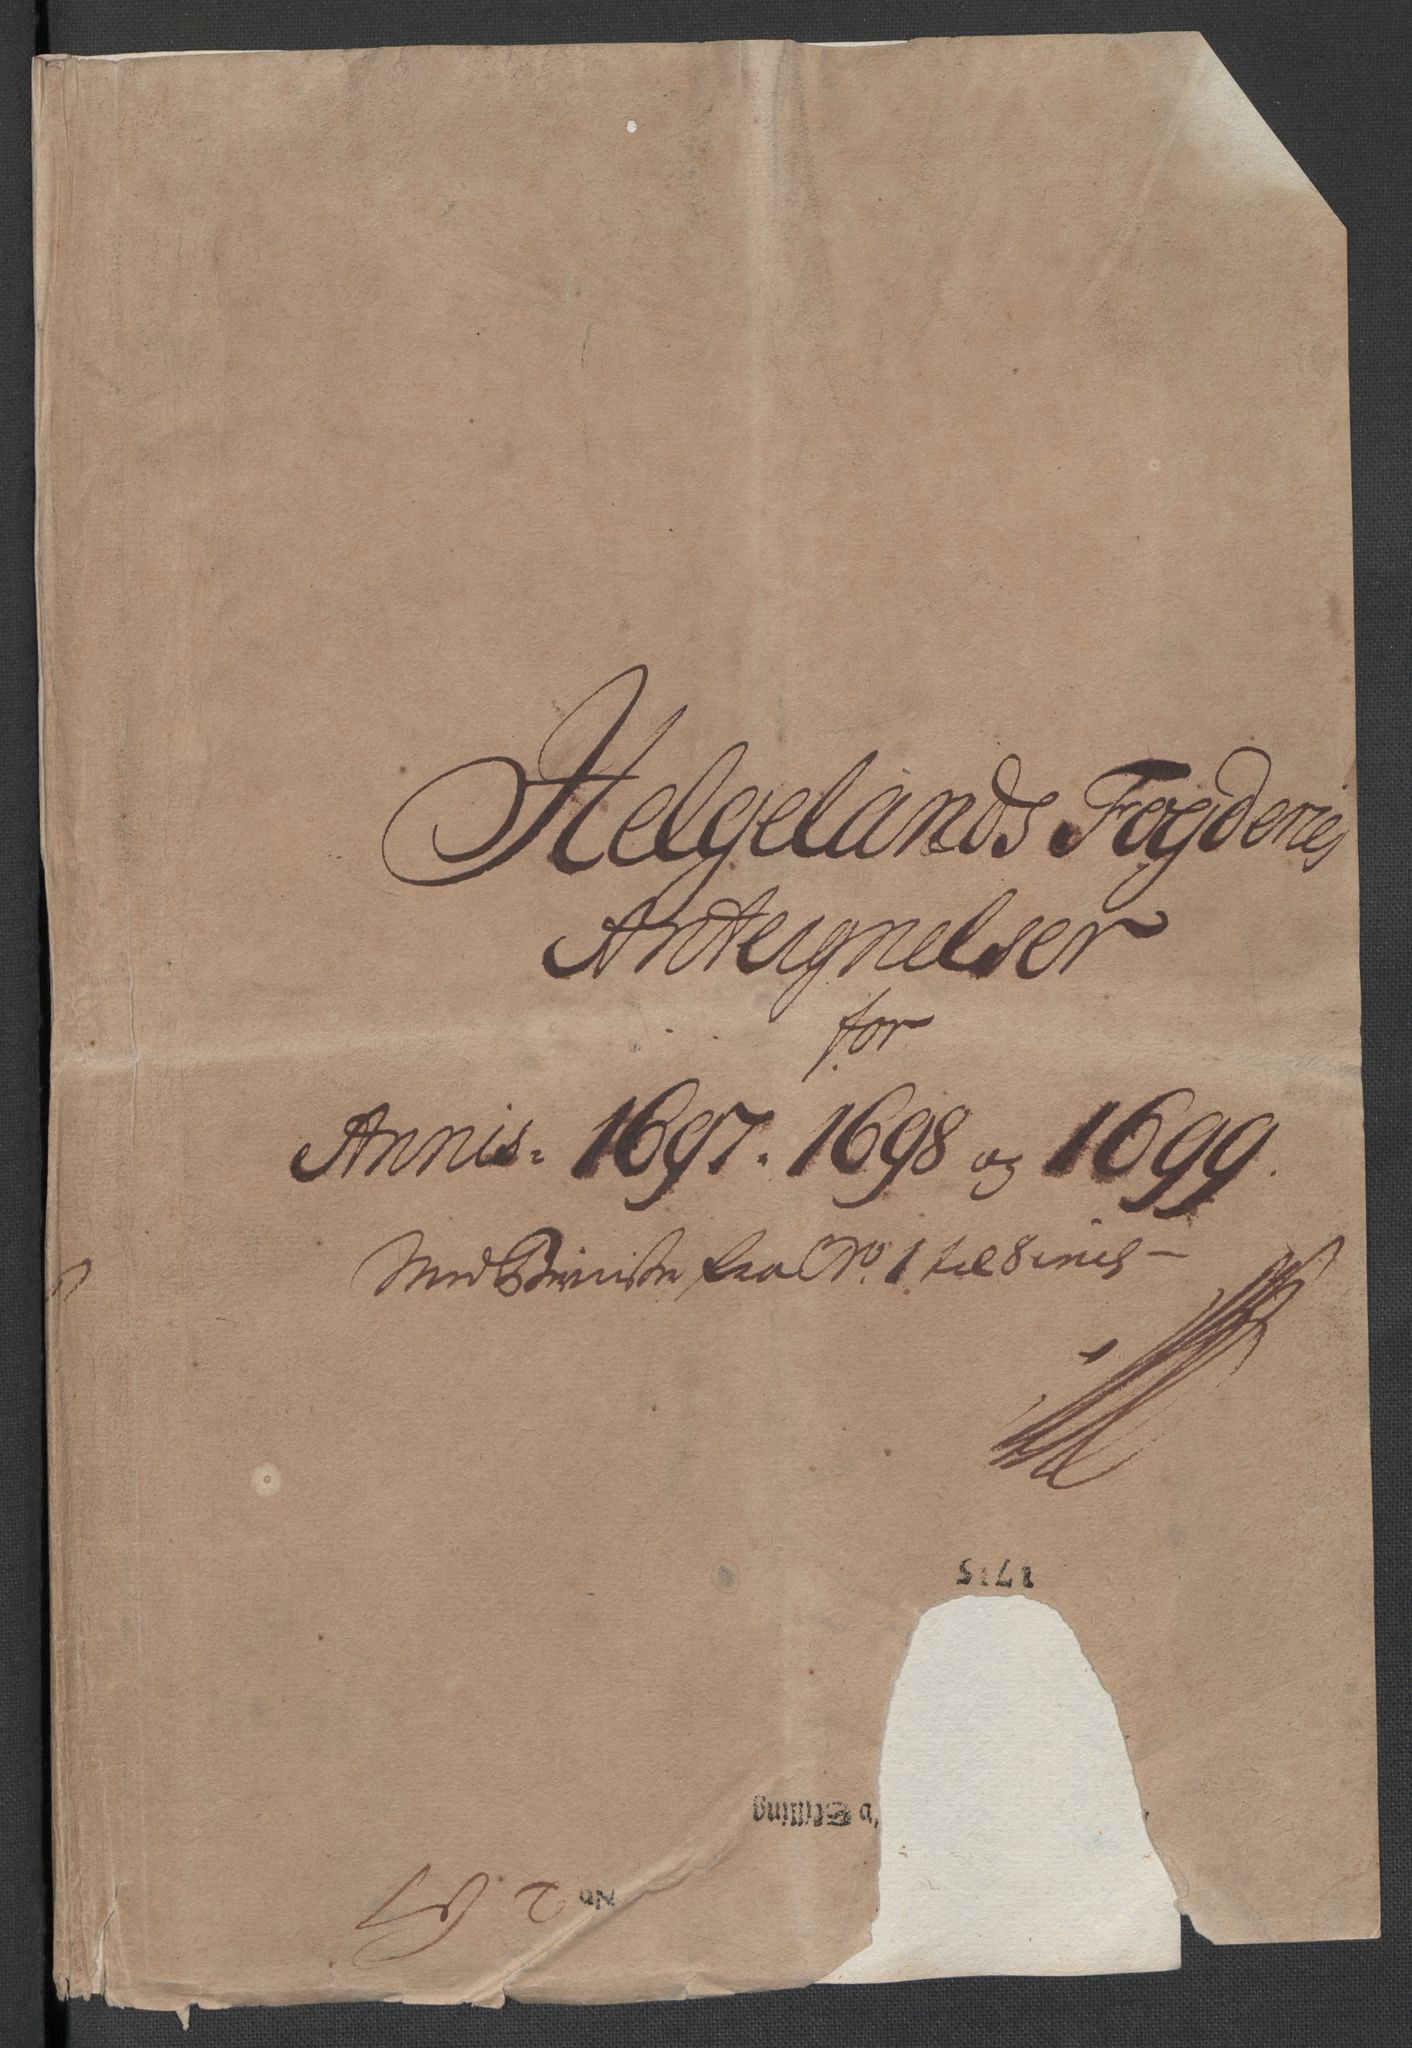 Helgelands Fogderies
Antegnelser
for
Annis. 1697. 1698 og 1699.
Med Beviiser fra No. 1 til 8 incl.
1715
Skilling
No 2